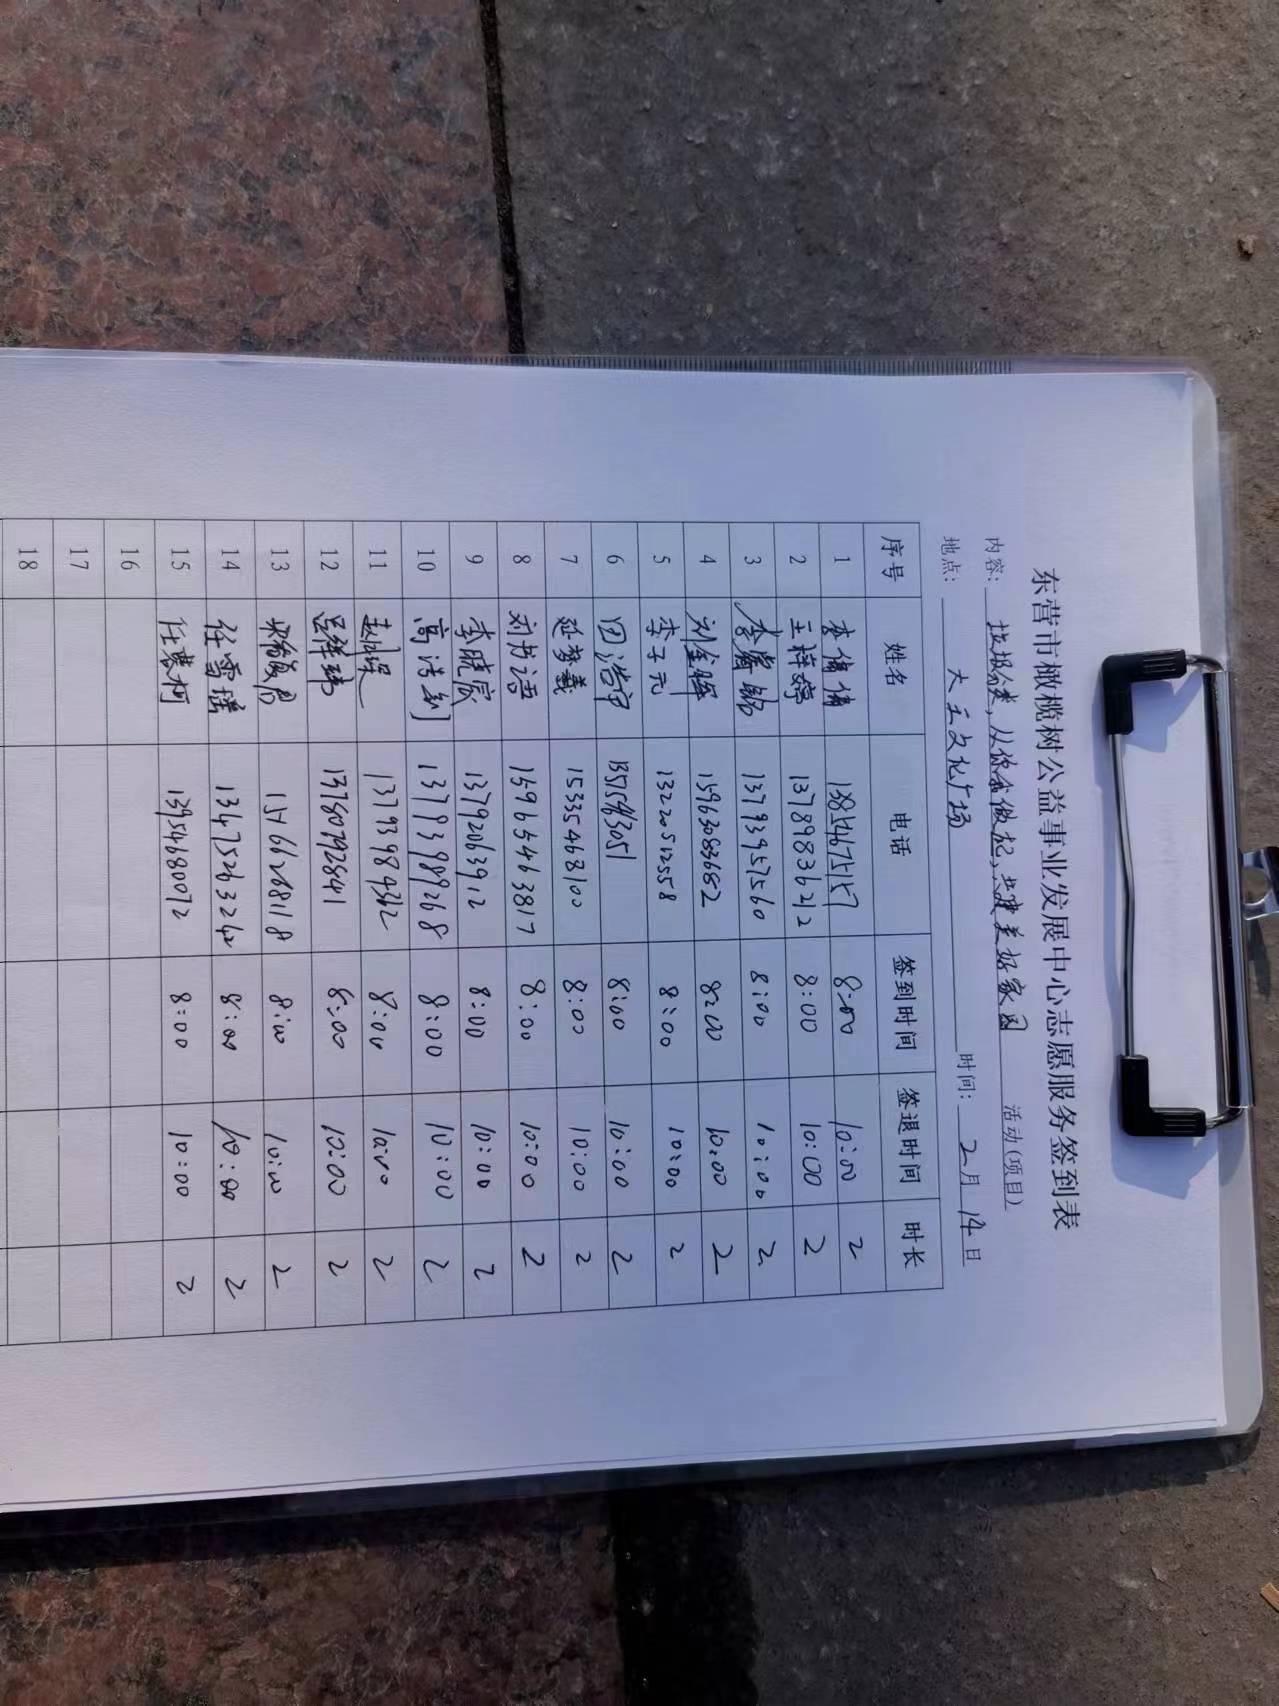 东营市橄榄树公益事业发展中心志愿服务签到表
内容: 垃圾分类,从你我做起,共建美好家园 活动(项目)
地点: 大王文化广场 时间: 2月14日
序号 姓名 电话 签到时间 签退时间 时长
1 李倩倩 13854675157 8:00 10:00 2
2 王梓婷 13789836212 8:00 10:00 2
3 李睿铭 13793957560 8:00 10:00 2
4 刘金晖 15963083682 8:00 10:00 2
5 李子元 13220512558 8:00 10:00 2
6 田浩 8:00 10:00 2
7 延梦羲 15335468100 8:00 10:00 2
8 刘书语 15965463817 8:00 10:00 2
9 李晓宸 13792063912 8:00 10:00 2
10 高浩 13793989268 8:00 10:00 2
11 赵 13793984362 8:00 10:00 2
12 吕 13780792841 8:00 10:00 2
13 15766268118 8:00 10:00 2
14 任雪瑶 13475263242 8:00 10:00 2
15 任慕柯 13954680072 8:00 10:00 2
16
17
18